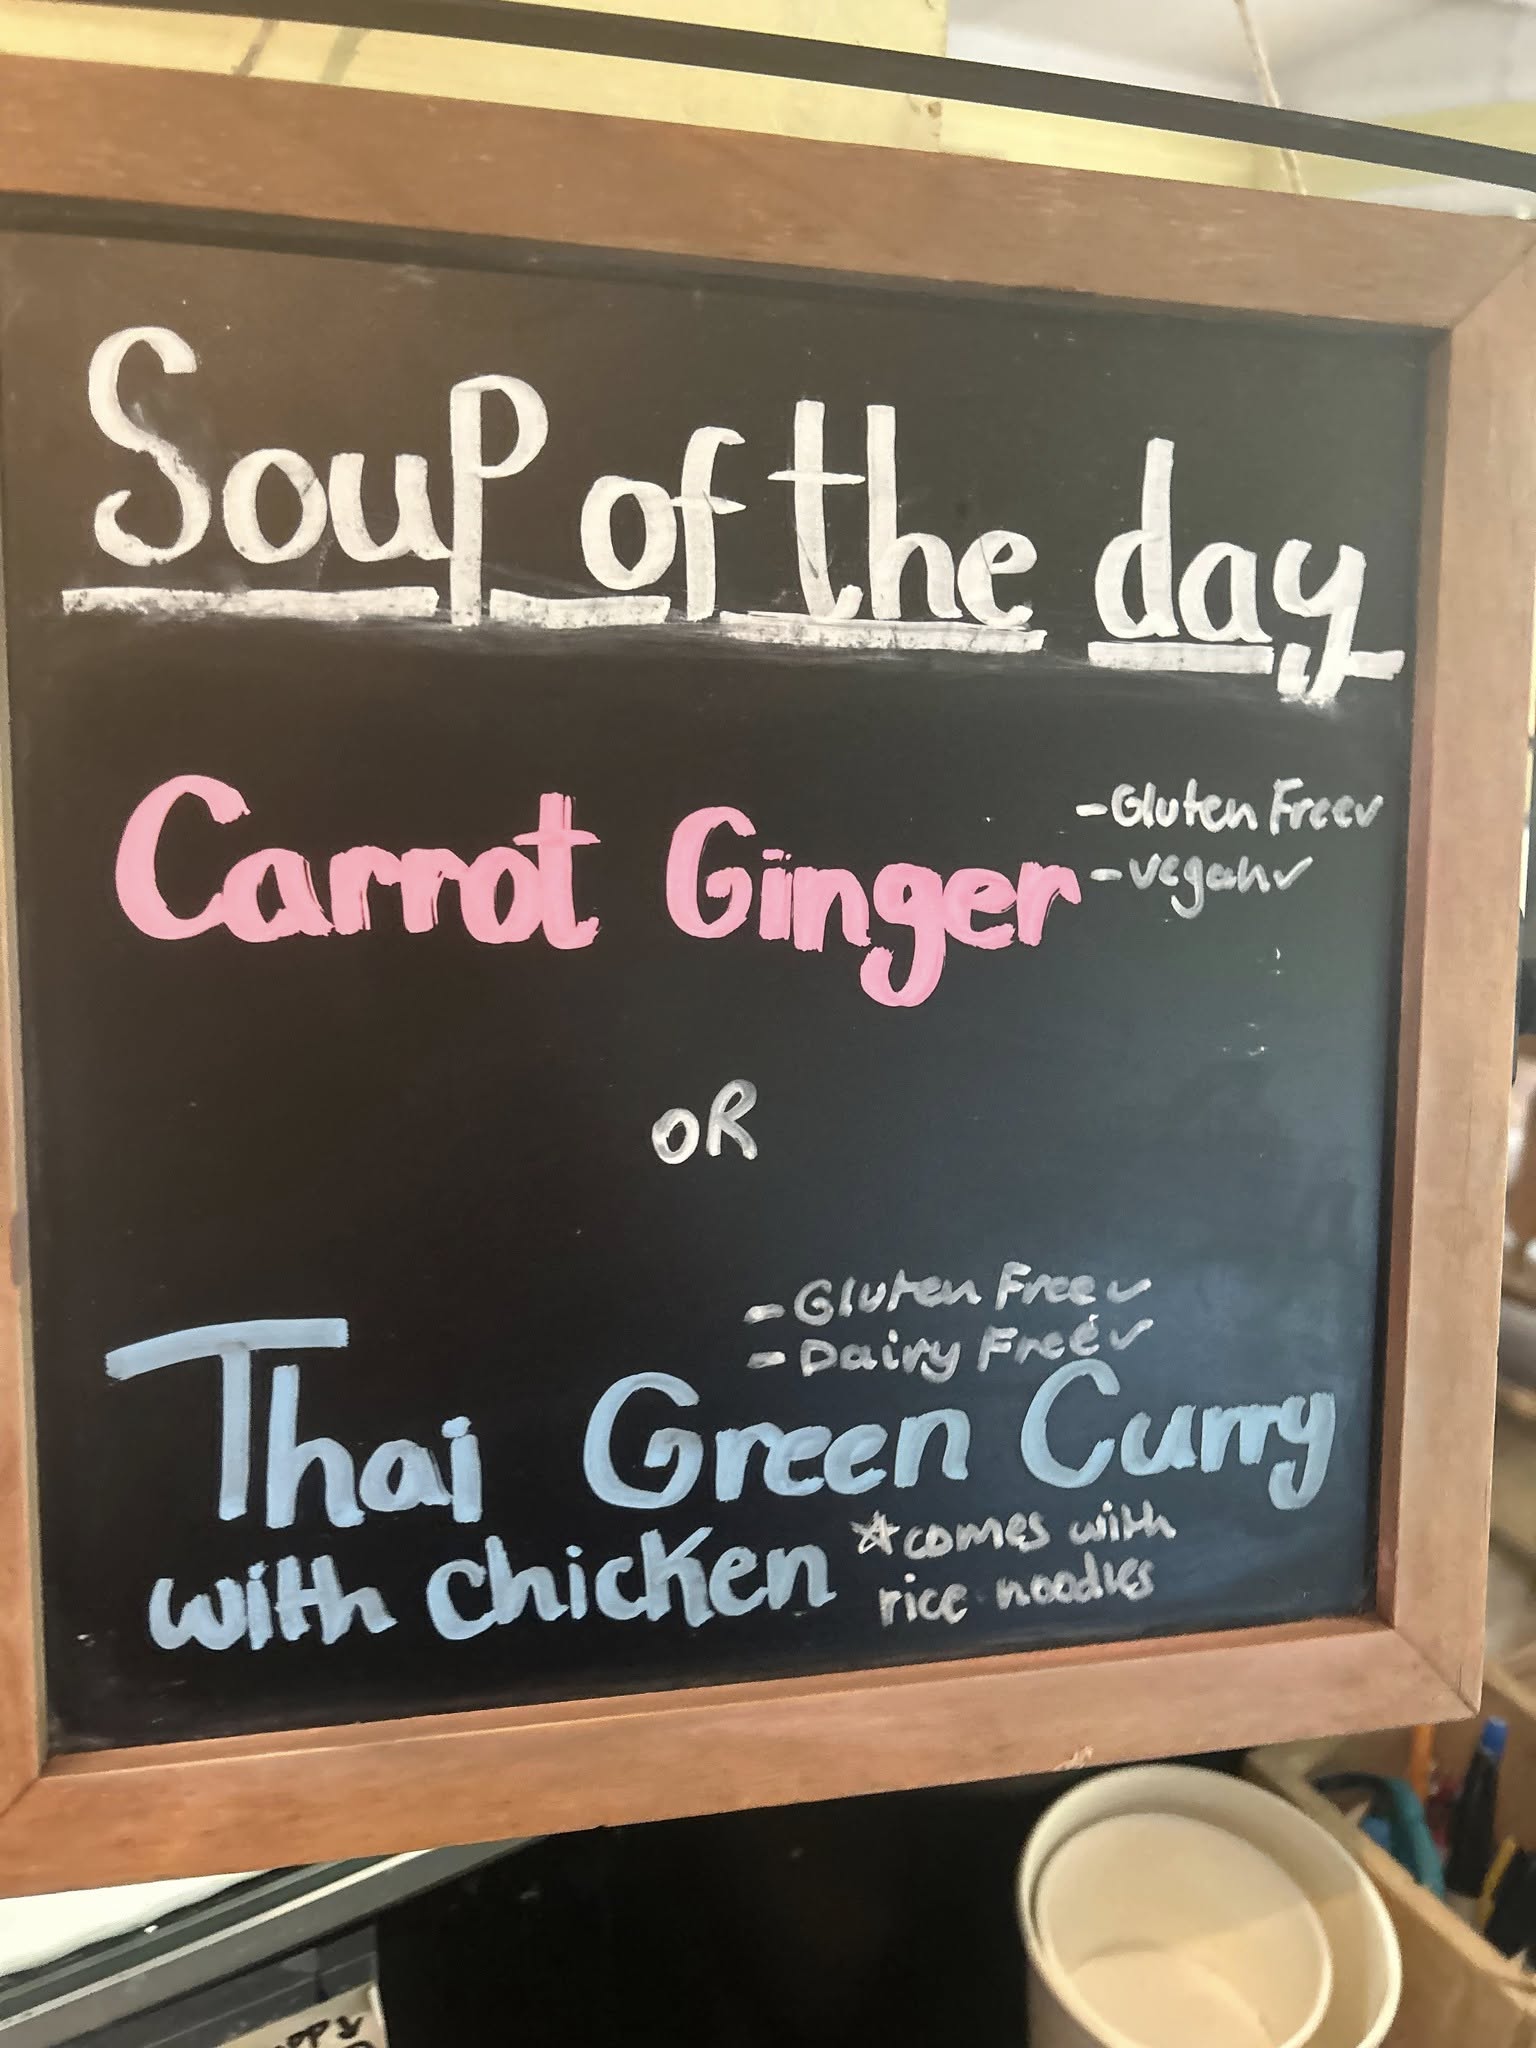 Soup of the day
Carrot Ginger
- Gluten Free ✓
- vegan ✓
OR
- Gluten Free ✓
- Dairy Free ✓
Thai Green Curry
with chicken
☆comes with
rice noodles